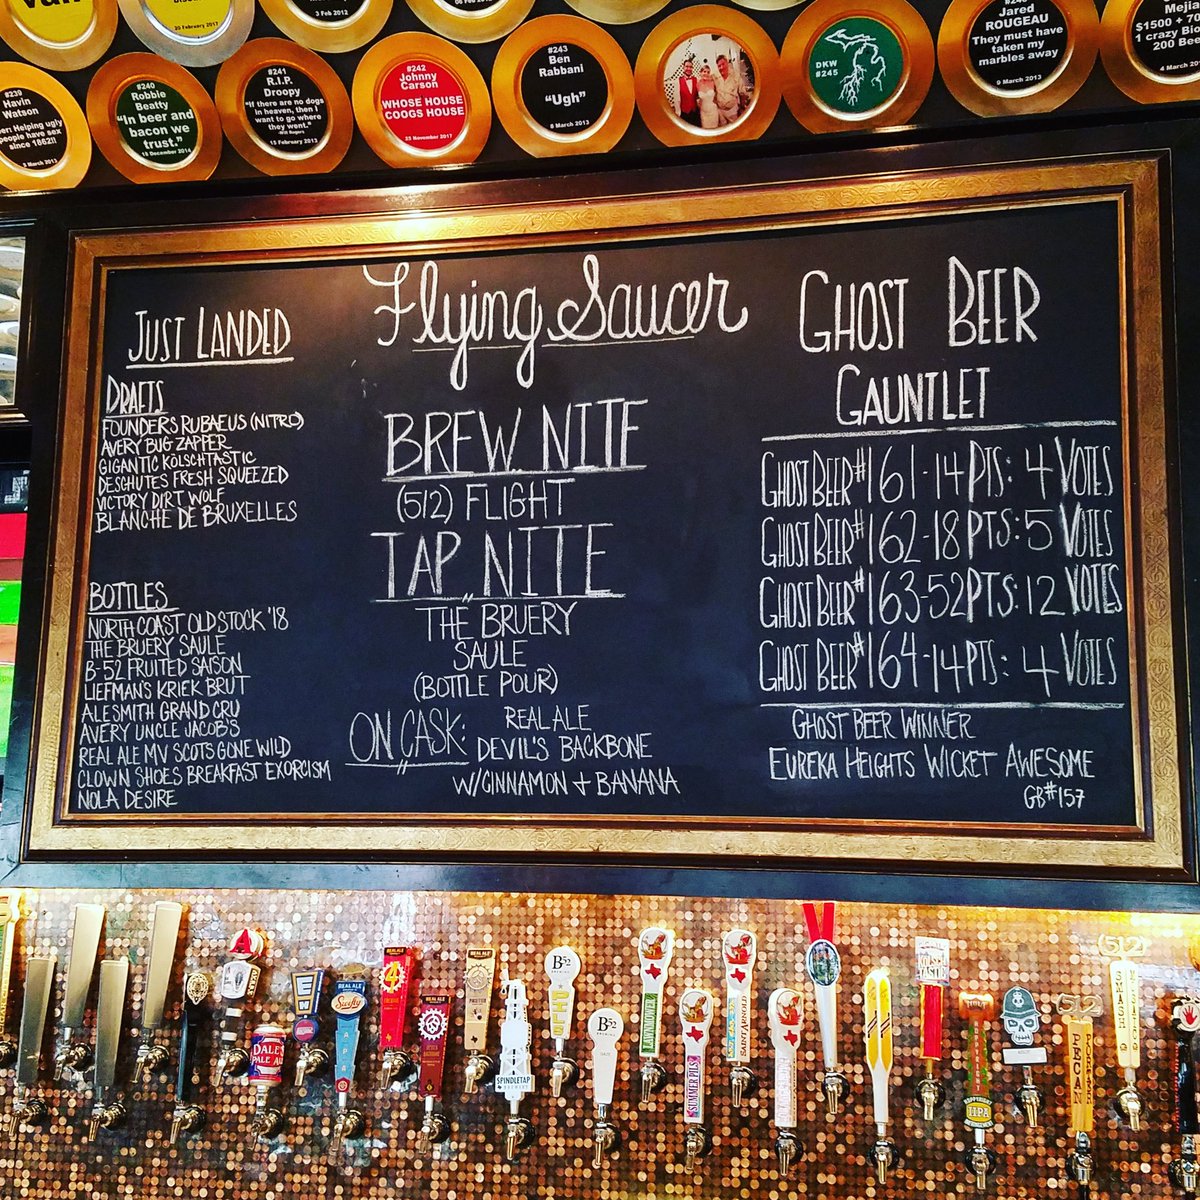 20 February 2017
3 Feb 2012
#239
Havin
Watson
Helping ugly
people have sex
since 1862!!
March 2013
#240
Robbie
Beatty
"In beer and
bacon we
trust."
18 December 2014
#241
R.I.P.
Droopy
"If there are no dogs
in heaven, then I
want to go where
they went."
-Will Rogers
15 February 2013
#242
Johnny
Carson
WHOSE HOUSE
COOGS HOUSE
25 November 2017
#243
Ben
Rabbani
"Ugh"
8 March 2013
DKW
#245
Jared
ROUGEAU
They must have
taken my
marbles away
9 March 2013
Mejia
1 crazy
200
4 March 2013
JUST LANDED
DRAFTS
FOUNDERS RUBAEUS (NITRO)
AVERY BUG ZAPPER
GIGANTIC KÖLSCHTASTIC
DESCHUTES FRESH SQUEEZED
VICTORY DIRT WOLF
BLANCHE DE BRUXELLES
BOTTLES
NORTH COAST OLD STOCK '18
THE BRUERY SAULE
B-52 FRUITED SAISON
LIEFMAN'S KRIEK BRUT
ALESMITH GRAND CRU
AVERY UNCLE JACOB'S
REAL ALE MV SCOTS GONE WILD
CLOWN SHOES BREAKFAST EXORCISM
NOLA DESIRE
Flying Saucer
BREW NITE
(512) FLIGHT
TAP NITE
THE BRUERY
SAULE
(BOTTLE POUR)
ON CASK: REAL ALE
DEVIL'S BACKBONE
W/CINNAMON + BANANA
GHOST BEER
GAUNTLET
GHOST BEER #161-14 PTS: 4 VOTES
GHOST BEER #162-18 PTS: 5 VOTES
GHOST BEER #163-52 PTS: 12 VOTES
GHOST BEER #164-14 PTS: 4 VOTES
GHOST BEER WINNER
EUREKA HEIGHTS WICKET AWESOME
GB#157
DALE'S
PALE
EW
REAL ALE
Swifty
APA
REAL ALE
4
REAL ALE
REAL ALE
SPINDLETAP
BREWERY
B-52
PILS
B-52
LAWNMOWER
SUMMER PILS
SAINT ARNOLD
IIPA
512
PECAN
PORTER
512